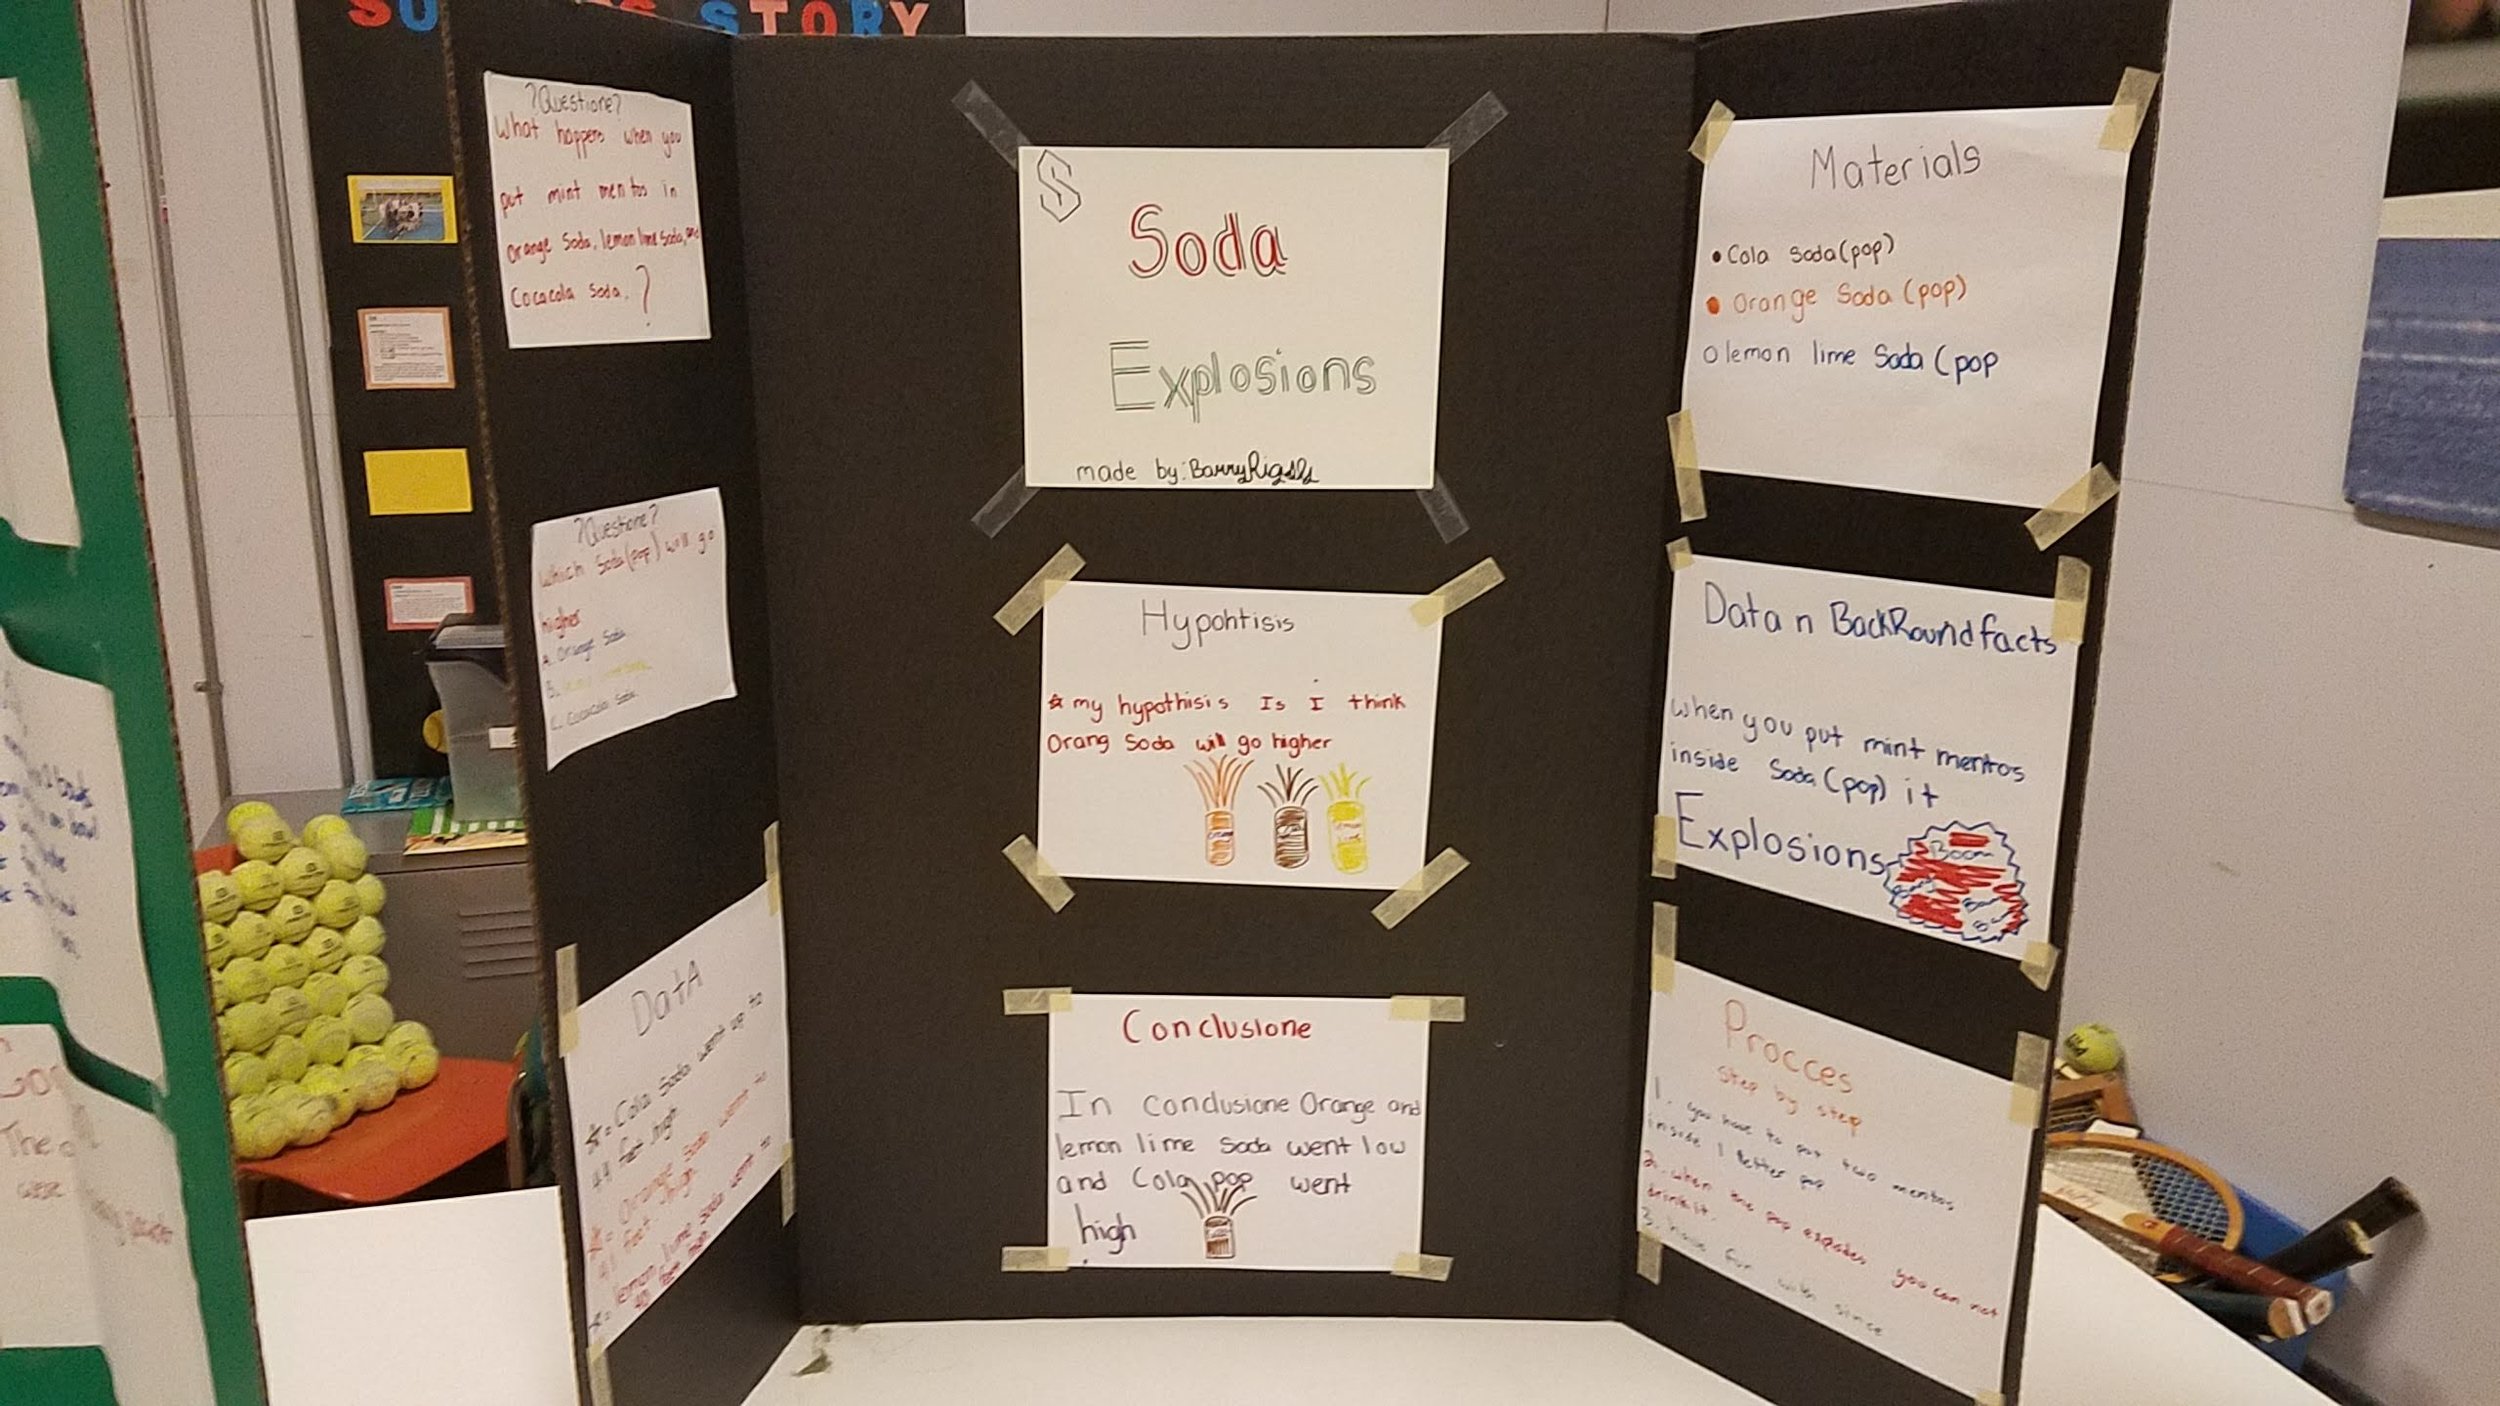 STORY
?Questione?
What happens when you
put mint mentos in
orange Soda, lemon lime Soda, and
Cocacola Soda. ?
?Questione?
Which Soda(pop) will go
higher
A. Orange Soda
B.
C. Cocacola Soda
DatA
Cola Soda went up to
44 feet high
Orange Soda went to
41 feet high
lemon lime Soda went to
40 feet
S
Soda
Explosions
made by: Barry
Hypohtisis
my hypothisis Is I think
Orang Soda will go higher
Conclusione
In conclusione Orange and
lemon lime soda went low
and Cola pop went
high
Materials
• Cola Soda(pop)
• Orange Soda (pop)
O lemon lime Soda (pop
Data n BackRound facts
when you put mint mentos
inside Soda(pop) it
Explosions
Boom
Procces
Step by step
1. you have to put two mentos
inside 1 pop
2. when the pop expodes you can not
drink it.
3. have fun with since